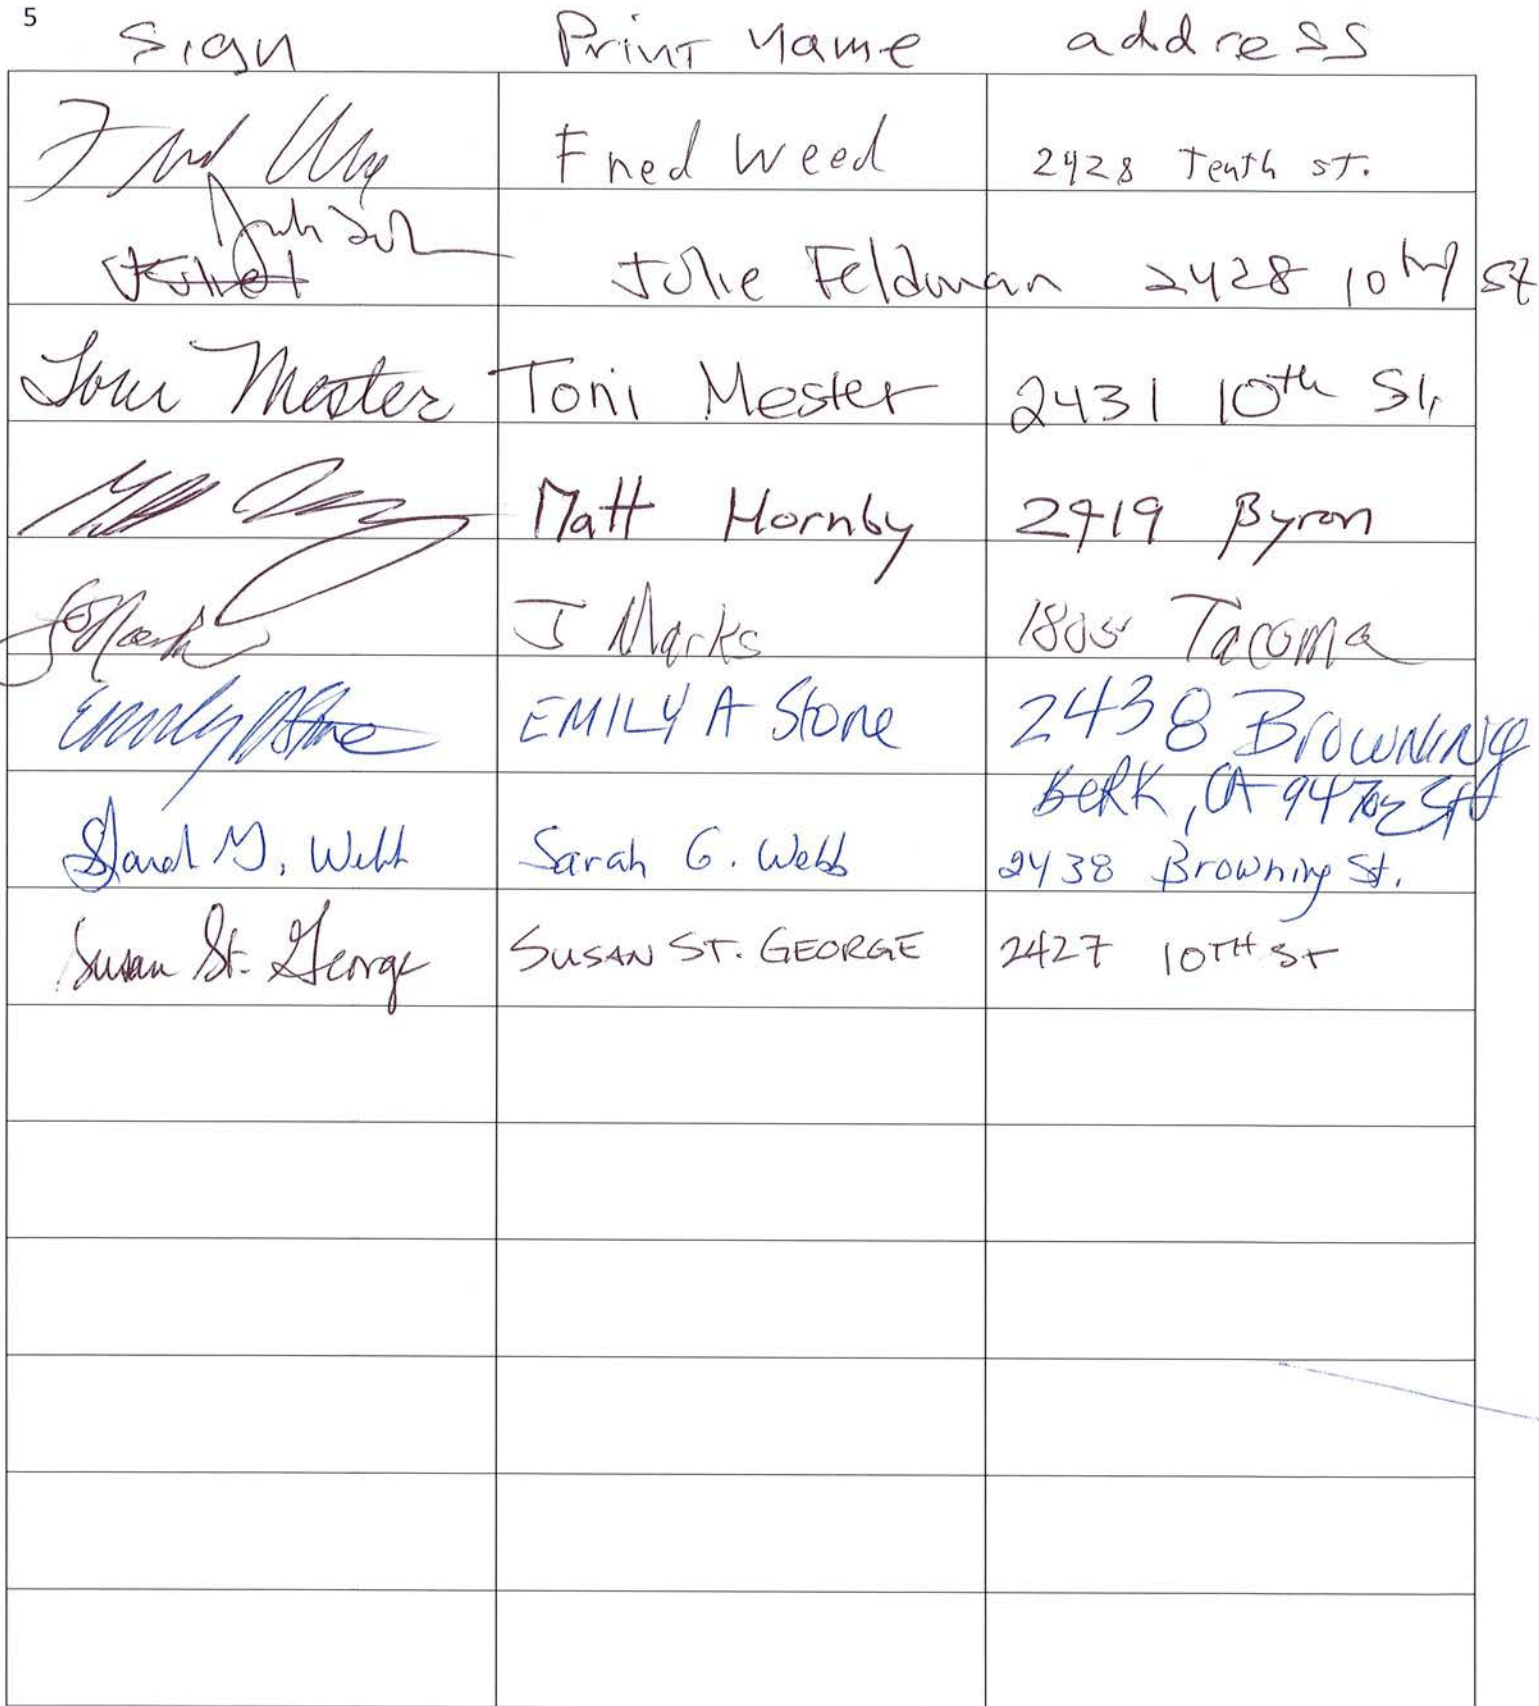 5
Sign Print Name address
Fred Weed 2428 Tenth ST.
Julie Feldman 2428 10th St
Toni Mester Toni Mester 2431 10th St,
Matt Hornby 2419 Byron
J Marks 1805 Tacoma
Emily A Stone EMILY A Stone 2438 Browning
BERK, CA 94702 St
Sarah G. Webb Sarah G. Webb 2438 Browning St.
Susan St. George SUSAN ST. GEORGE 2427 10TH ST